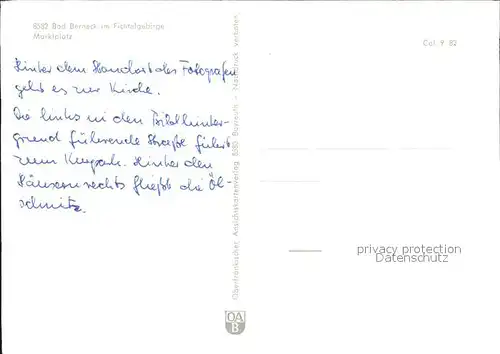 8582 Bad Berneck im Fichtelgebirge
Marktplatz
Hinter dem Standort des Fotografen
geht es zur Kirche.
Die links in den Bildhinter-
grund führende Straße führt
zum Kurpark. Hinter den
Häusern rechts fließt die Öl-
schnitz.
Oberfränkischer Ansichtskartenverlag 8580 Bayreuth - Nachdruck verboten
OA
B
Col. Y 82
privacy protection
Datenschutz